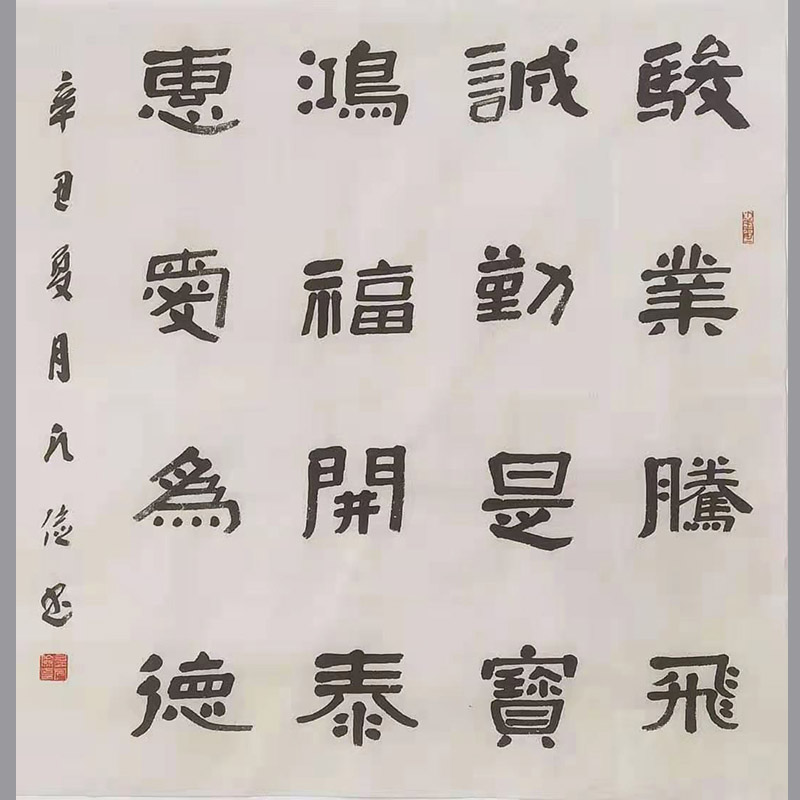 駿業騰飛
誠勤是寶
鴻福開泰
惠愛為德
辛丑夏月